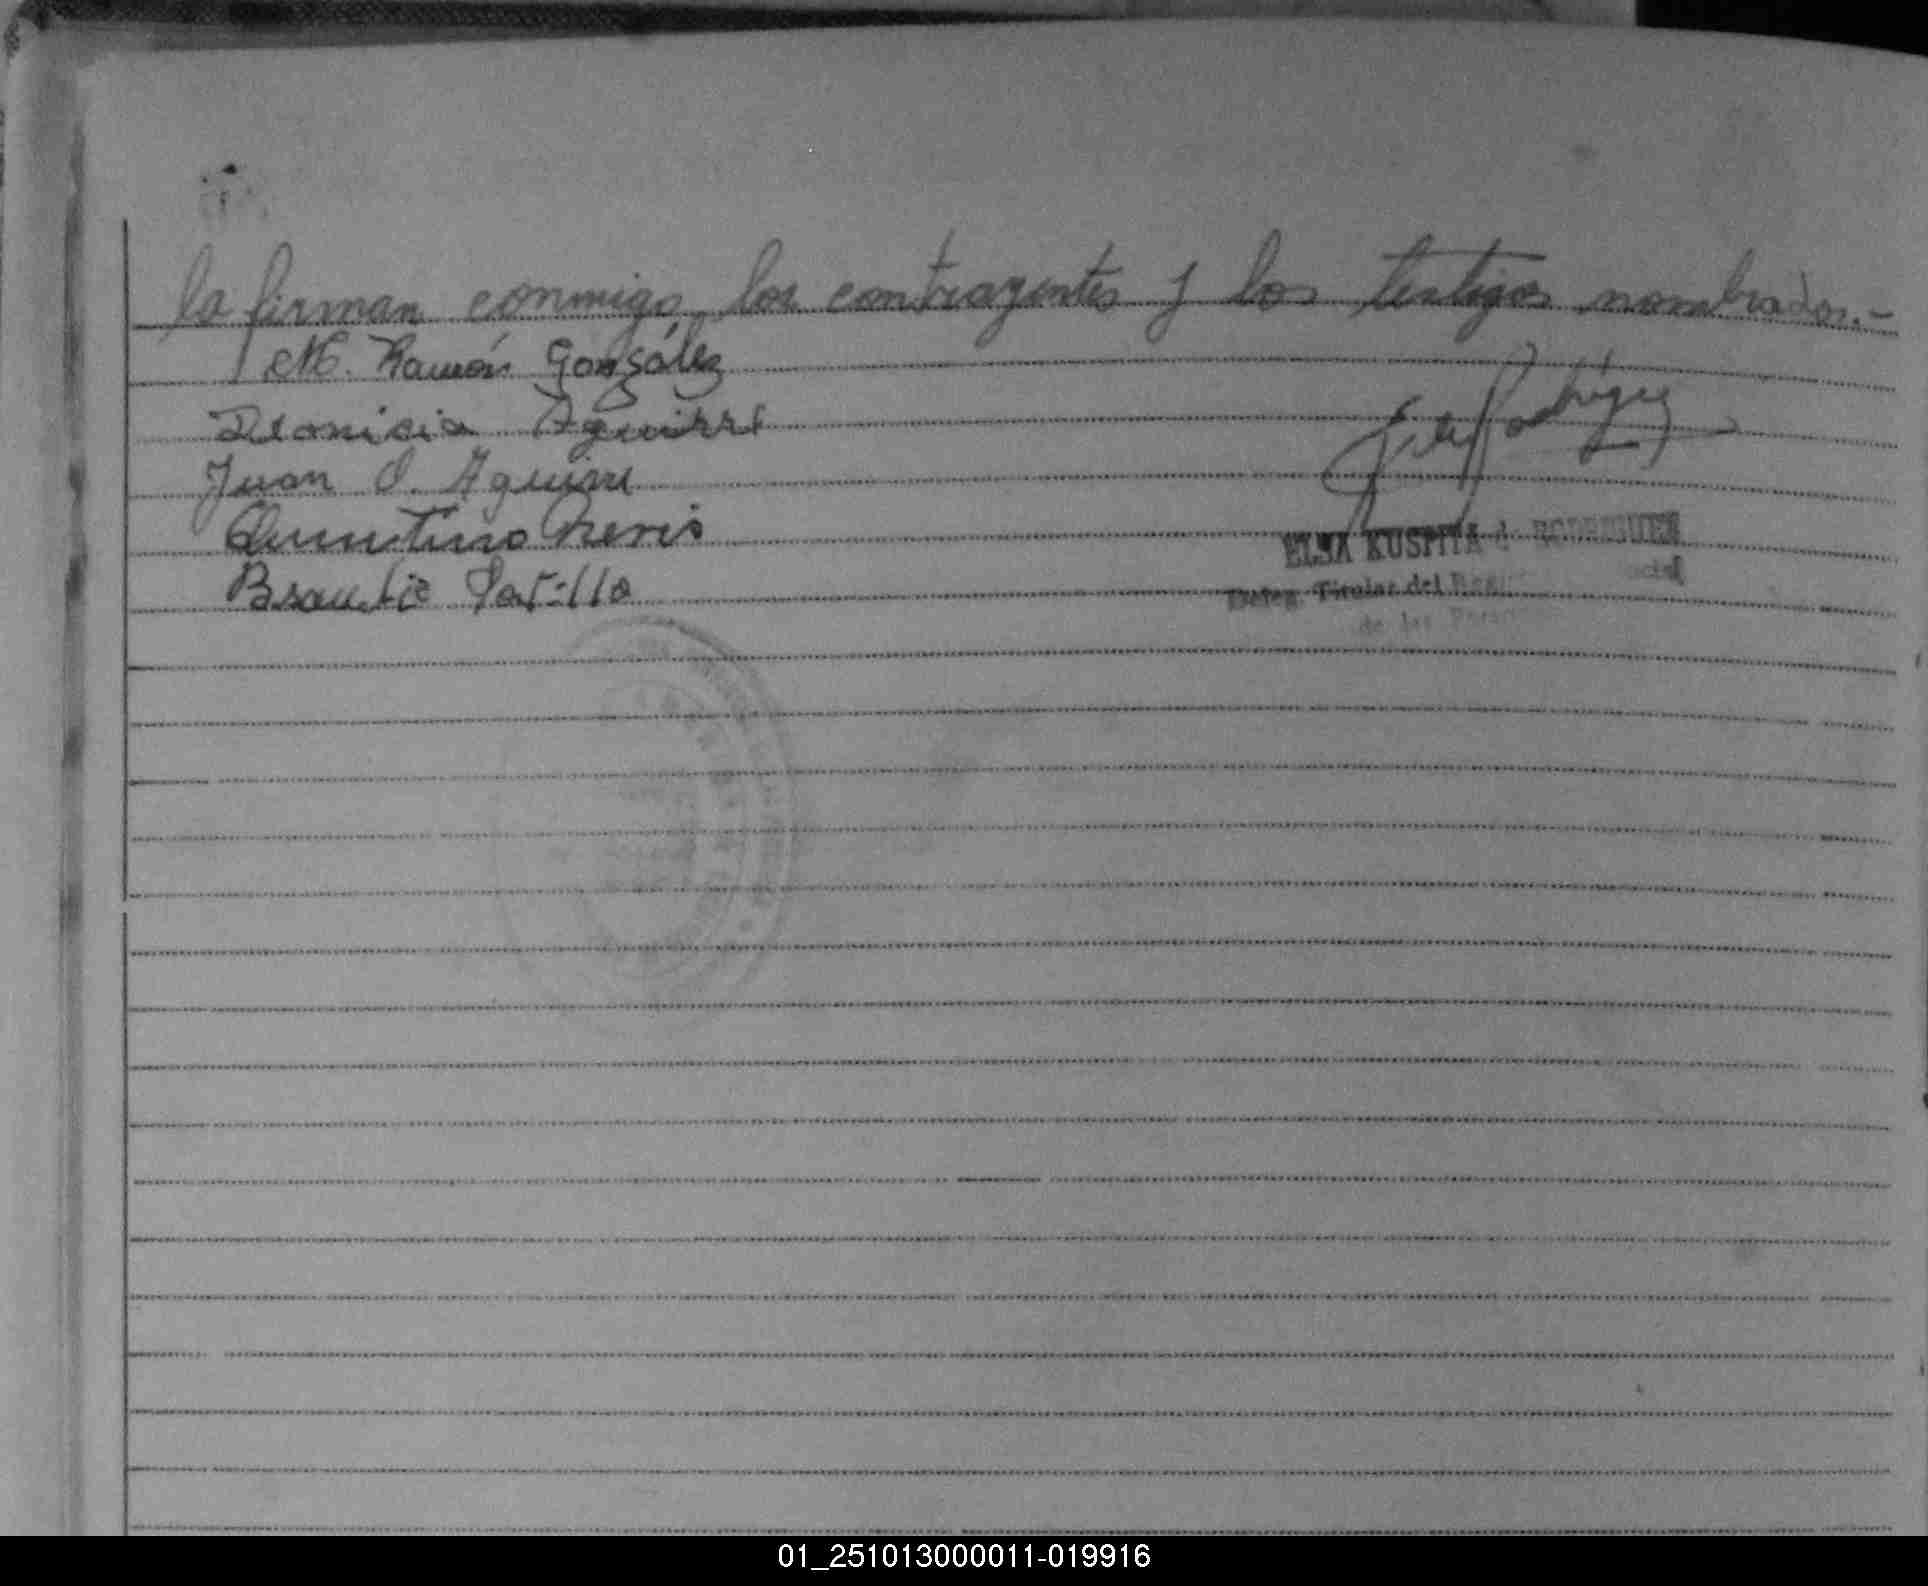 la firman conmigo los contrayentes y los testigos nombrados.-
M. Ramón González
Dionicia Aguirre
Juan O. Aguirre
Quintino Neris
Braulio Portillo
Rodríguez
ELSA KUSPITA de RODRIGUEZ
Deleg. Titular del
de las
01_251013000011-019916